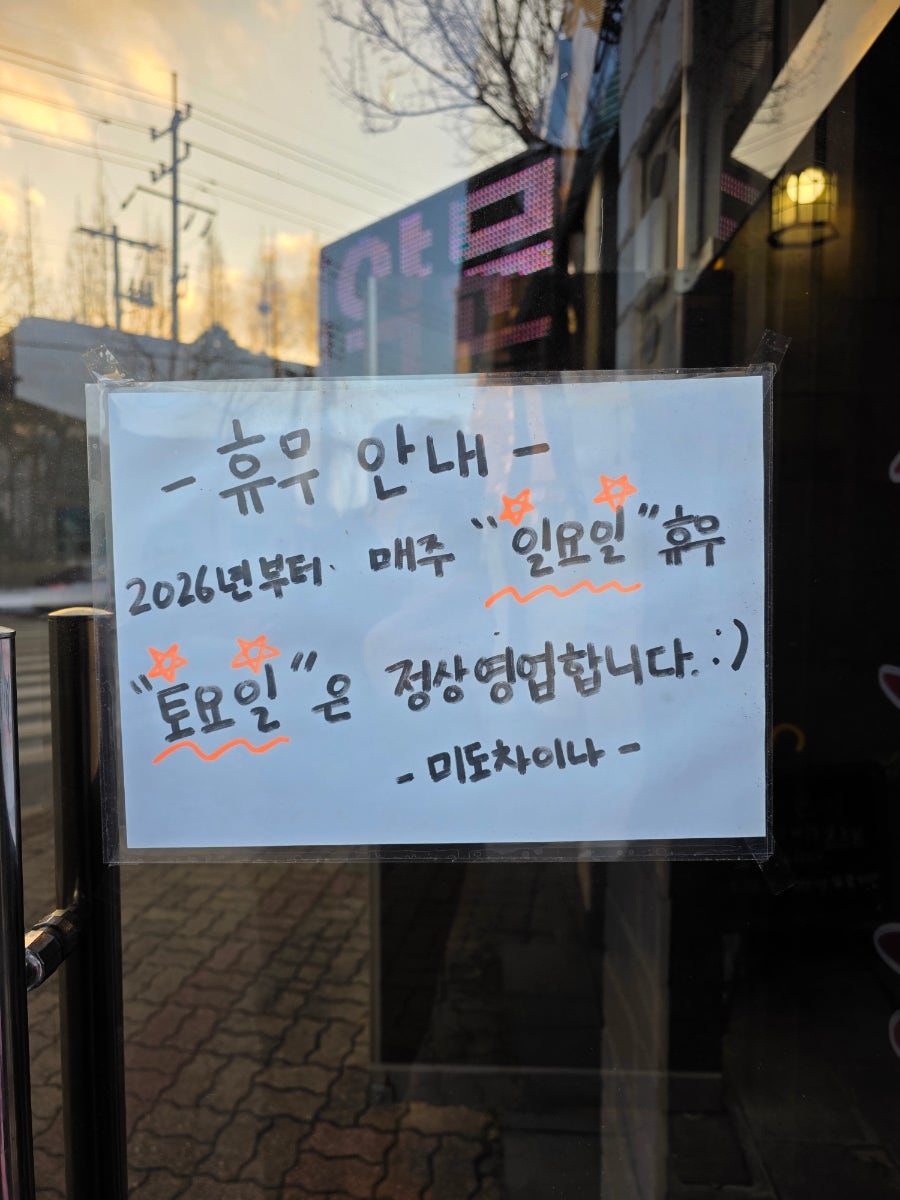 - 휴무 안내 -
2026년부터. 매주 "일요일" 휴무
"토요일"은 정상영업합니다. :)
- 미도차이나 -